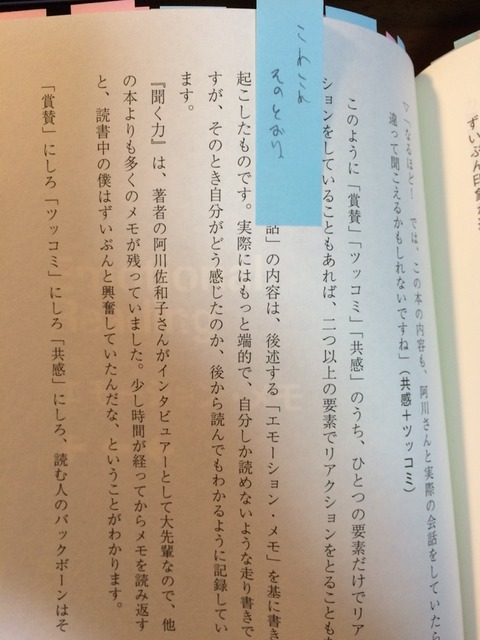 ずいぶん日常な
▽「なるほど！　では、この本の内容も、阿川さんと実際の会話をしていたら
違って聞こえるかもしれないですね」（共感＋ツッコミ）
このように「賞賛」「ツッコミ」「共感」のうち、ひとつの要素だけでリア
ションをしていることもあれば、二つ以上の要素でリアクションをとることも
話」の内容は、後述する「エモーション・メモ」を基に書き
起こしたものです。実際にはもっと端的で、自分しか読めないような走り書きで
すが、そのとき自分がどう感じたのか、後から読んでもわかるように記録してい
ます。
『聞く力』は、著者の阿川佐和子さんがインタビュアーとして大先輩なので、他
の本よりも多くのメモが残っていました。少し時間が経ってからメモを読み返す
と、読書中の僕はずいぶんと興奮していたんだな、ということがわかります。
「賞賛」にしろ「ツッコミ」にしろ「共感」にしろ、読む人のバックボーンはそ
これこれ
そのとおり